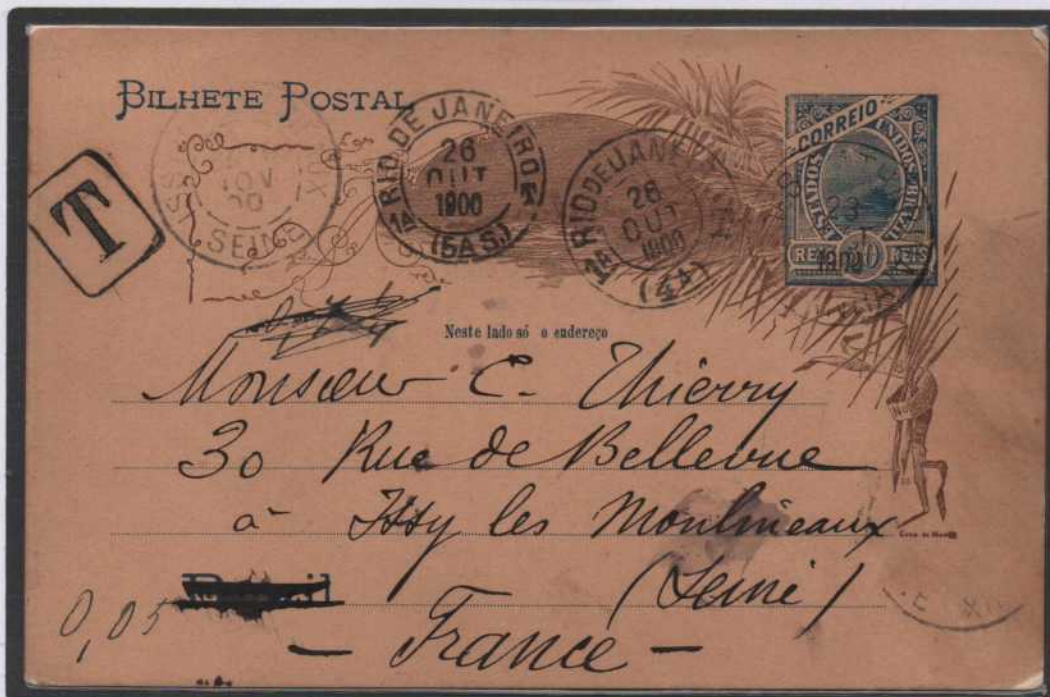 BILHETE POSTAL
T
SEINE
RIO DE JANEIRO
26
OUT
1900
(5A S.)
RIO DE JANEI
26
OUT
1900
(4A)
CORREIO
ESTADOS UNIDOS BRAZIL
REIS 50 REIS
23
1900
Neste lado só o endereço
Monsieur C. Thierry
30 Rue de Bellevue
à Issy les Moulineaux
(Seine)
0,05
- France -